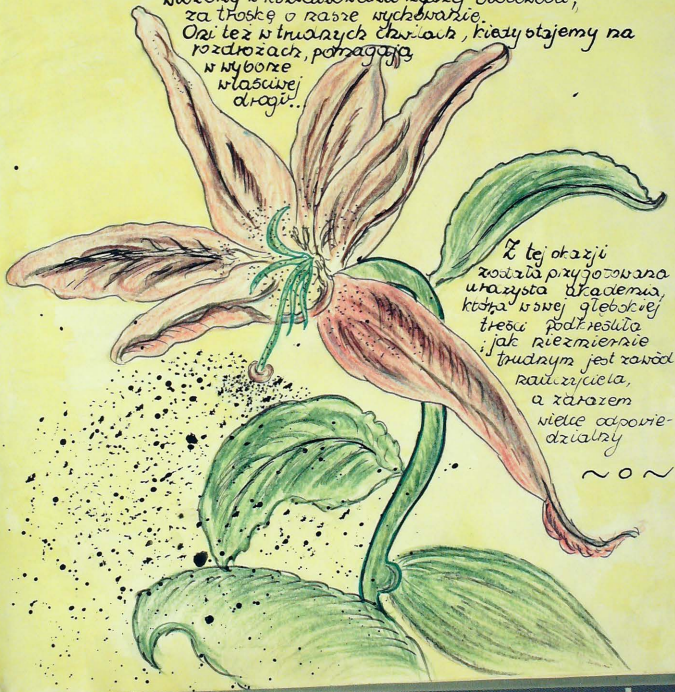 za troskę o nasze wychowanie.
Oni też w trudnych chwilach, kiedy stajemy na
rozdrożach, pomagają
w wyborze
właściwej
drogi...
Z tej okazji
została przygotowana
uroczysta akademia,
która w swej głębokiej
treści podkreśliła
jak niezmiernie
trudnym jest zawód
nauczyciela,
a zarazem
wielce odpowie-
dzialny
~o~